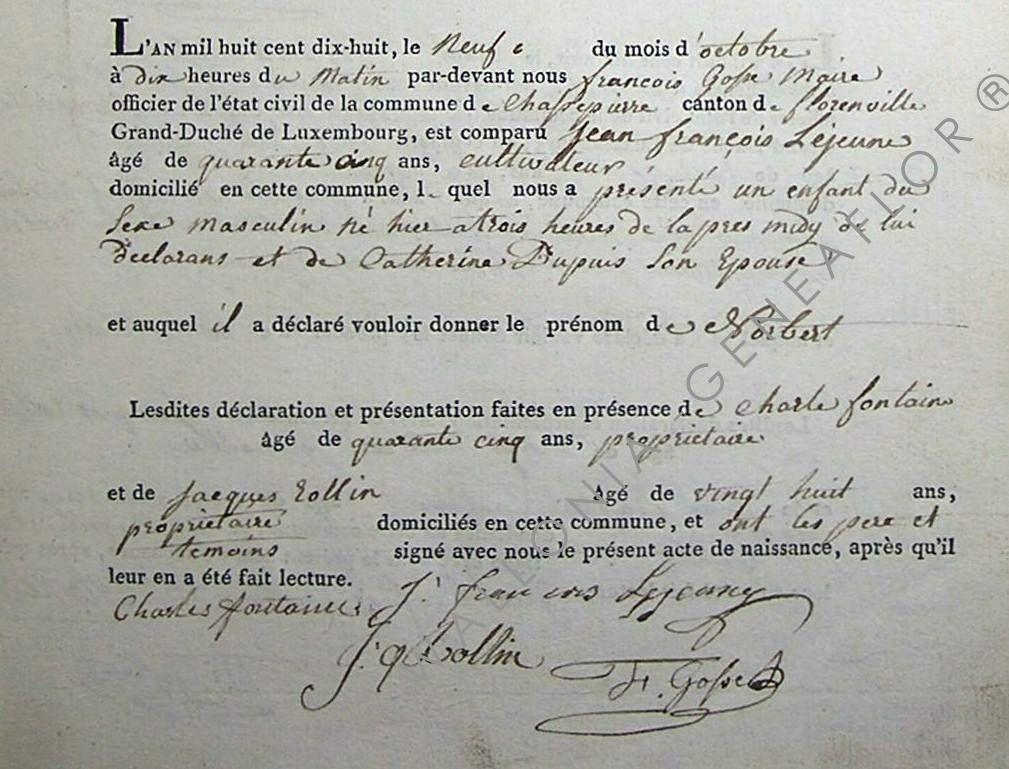 L'AN mil huit cent dix-huit, le Neuf du mois d'octobre
à dix heures du Matin par-devant nous françois Gosse Maire
officier de l'état civil de la commune de Chassepierre canton de florenville
Grand-Duché de Luxembourg, est comparu Jean françois Lejeune
âgé de quarante cinq ans, cultivateur
domicilié en cette commune, l quel nous a présenté un enfant du
Sexe masculin né hier a trois heures de la pres midy de lui
declarans et de Catherine Dupuis Son Epouse
et auquel il a déclaré vouloir donner le prénom de Norbert
Lesdites déclaration et présentation faites en présence de Charle fontain
âgé de quarante cinq ans, proprietaire
et de Jacques Collin âgé de vingt huit ans,
proprietaire domiciliés en cette commune, et ont les pere et
temoins signé avec nous le présent acte de naissance, après qu'il
leur en a été fait lecture.
Charles fontaine J. francois Lejeune
J. q Collin
F. Gosse
GENEAFLOR ®